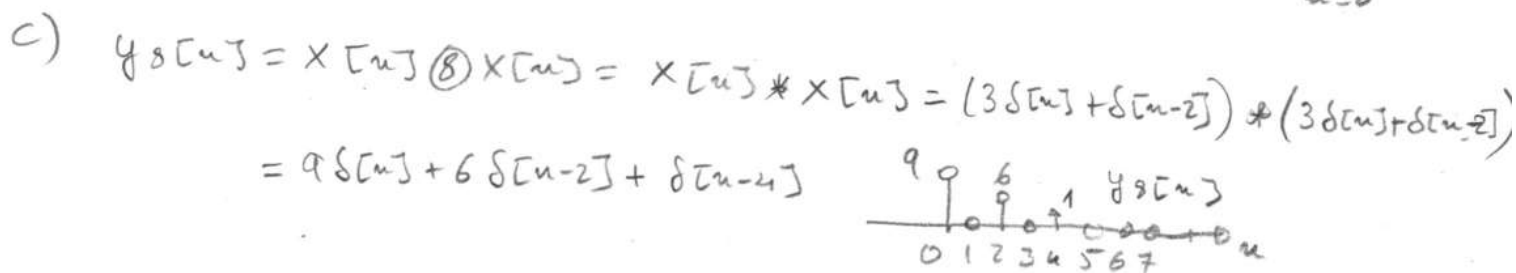 c) y8[n] = x[n] ⑧ x[n] = x[n] * x[n] = (3δ[n] + δ[n-2]) * (3δ[n] + δ[n-2])
= 9δ[n] + 6δ[n-2] + δ[n-4]
9 6 1 y8[n]
0 1 2 3 4 5 6 7 n